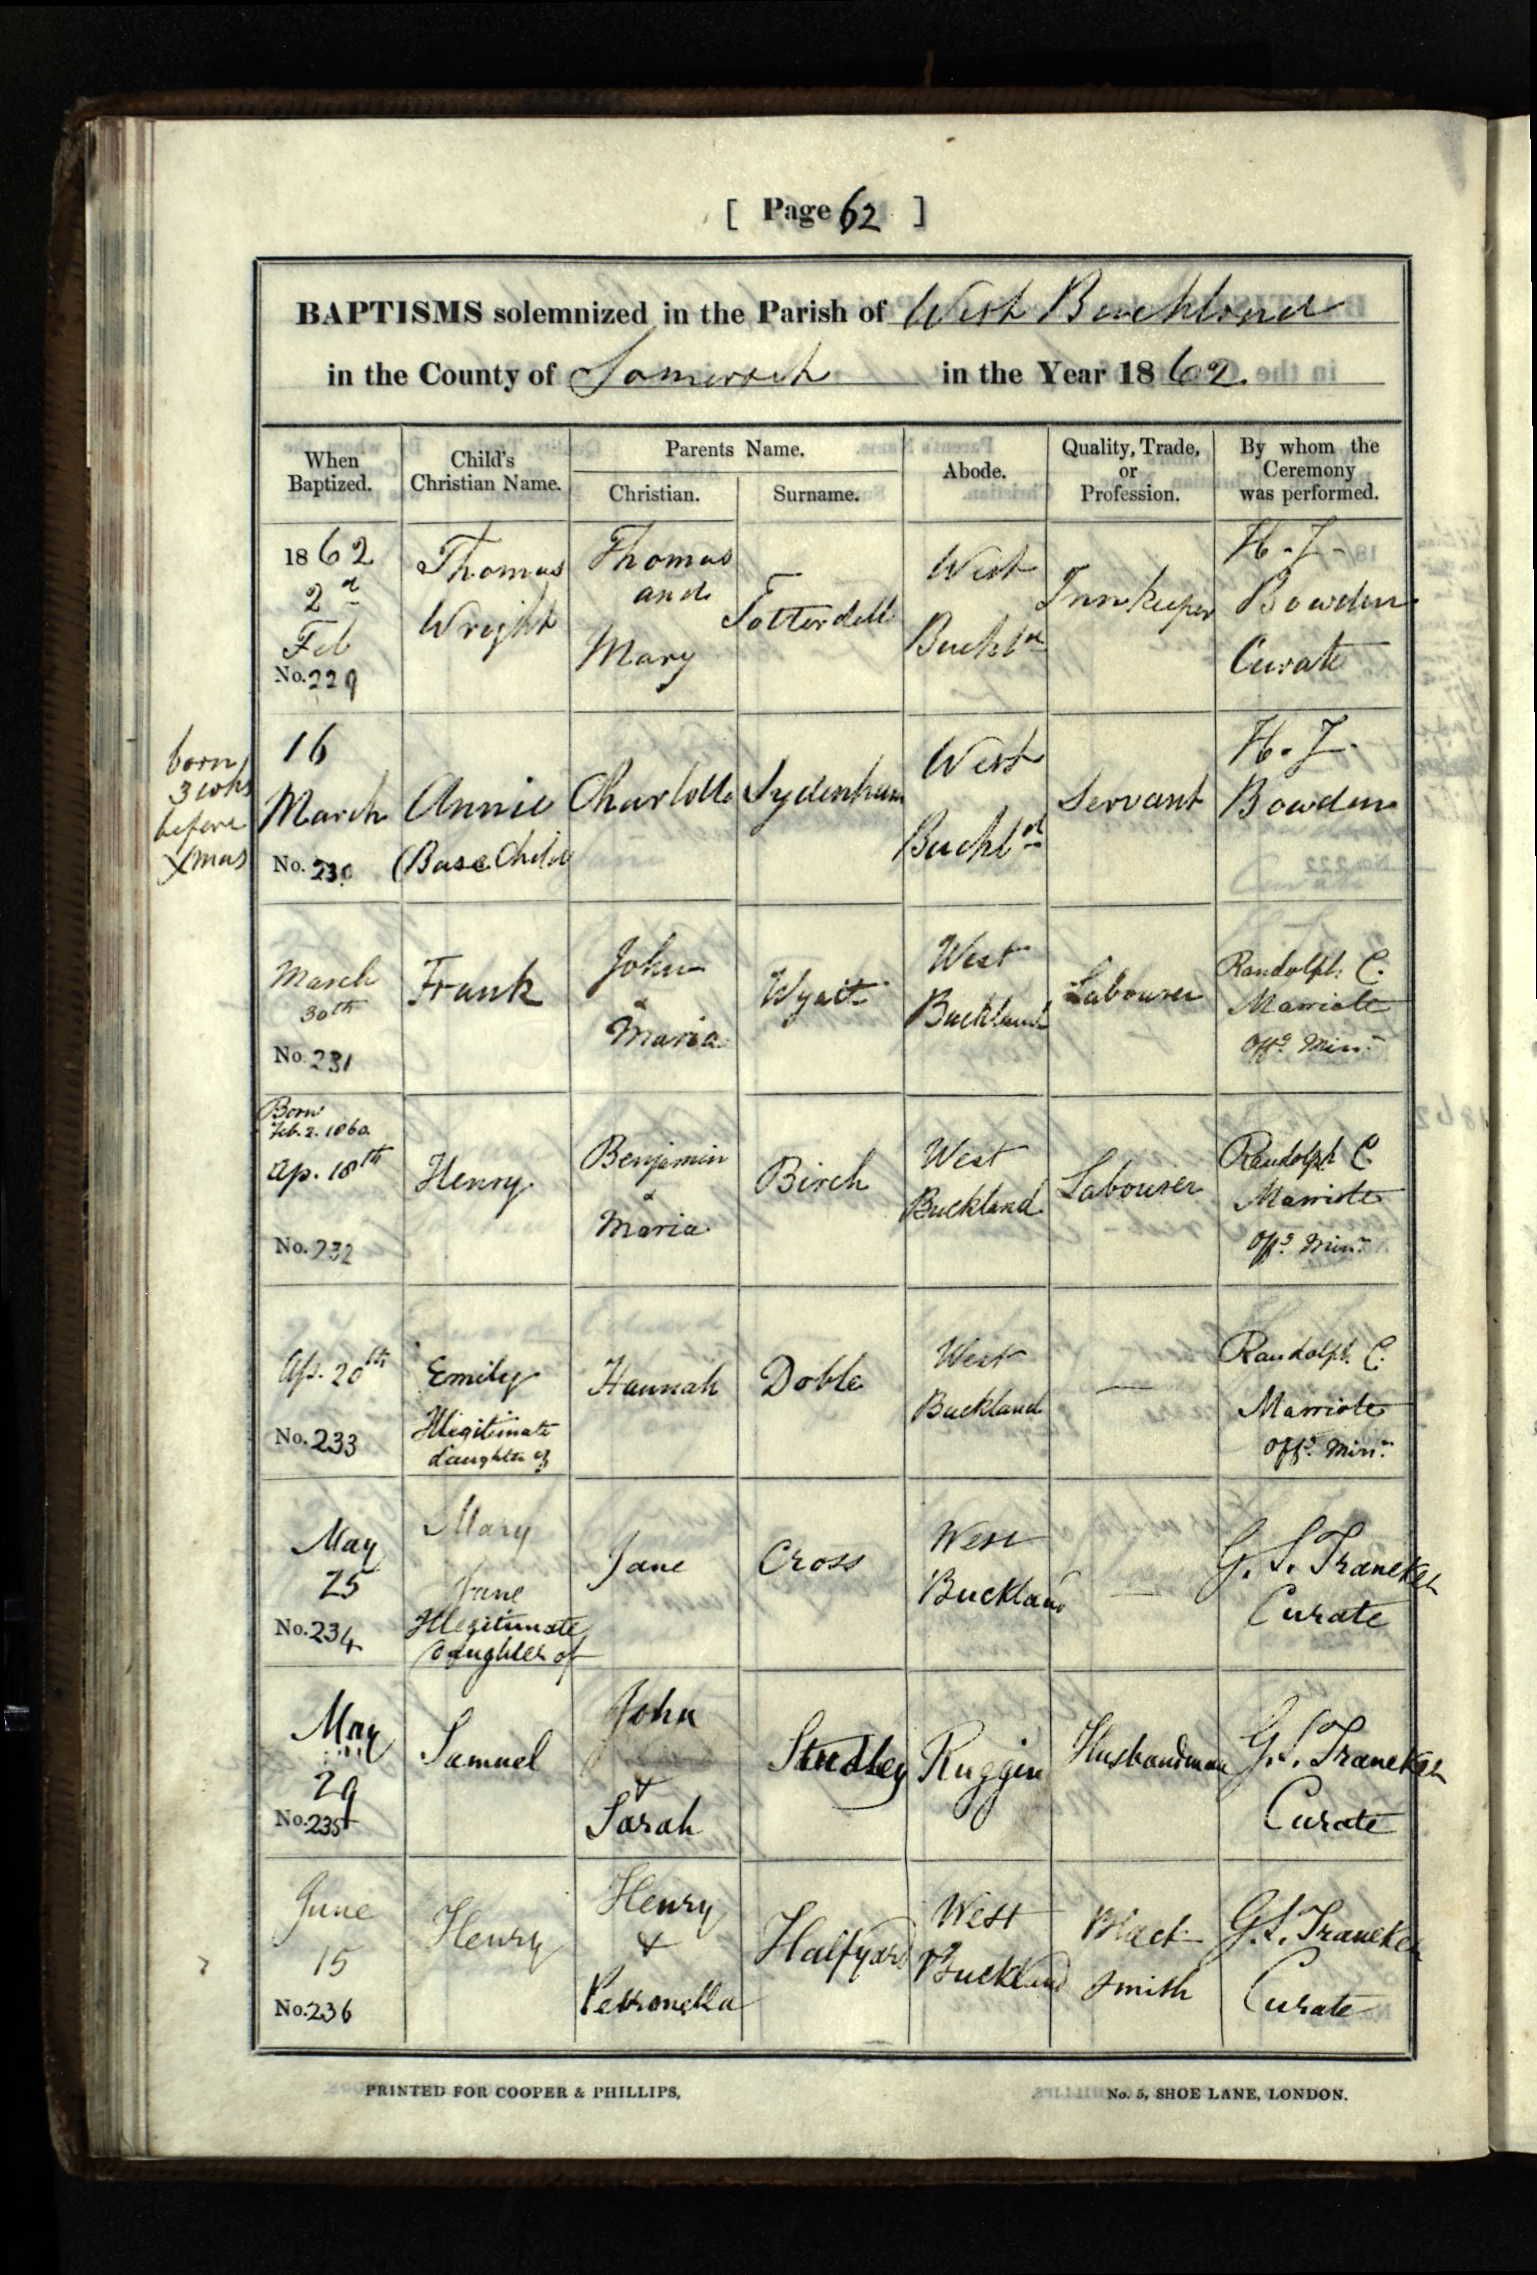 [ Page 62 ]
BAPTISMS solemnized in the Parish of West Buckland
in the County of Somerset in the Year 1862.
When Baptized.
Child's Christian Name.
Parents Name.
Christian.
Surname.
Abode.
Quality, Trade, or Profession.
By whom the Ceremony was performed.
1862
2d
Feb
No. 229
Thomas
Wright
Thomas
and
Mary
Totterdell
West
Buckld
Innkeeper
H. J.
Bowden
Curate
born
3 wks
before
Xmas
16
March
No. 230
Annie
(Base Child
Charlotte
Sydenham
West
Buckld
Servant
H. J.
Bowden
March
30th
No. 231
Frank
John
&
Maria
Wyatt
West
Buckland
Labourer
Randolph C.
Marriote
Offg Minr
Born
Feb. 2. 1860
Ap. 18th
No. 232
Henry
Benjamin
&
Maria
Birch
West
Buckland
Labourer
Randolph C.
Marriote
Offg Minr
Ap. 20th
No. 233
Emily
Illegitimate
daughter of
Hannah
Doble
West
Buckland
—
Randolph C.
Marriote
Offg Minr
May
25
No. 234
Mary
Jane
Illegitimate
daughter of
Jane
Cross
West
Buckland
—
G. S. Traneker
Curate
May
29
No. 235
Samuel
John
&
Sarah
Studley
Ruggin
Husbandman
G. S. Traneker
Curate
June
15
No. 236
Henry
Henry
&
Petronella
Halfyard
West
Buckland
Black
smith
G. S. Traneker
Curate
PRINTED FOR COOPER & PHILLIPS,
No. 5, SHOE LANE, LONDON.